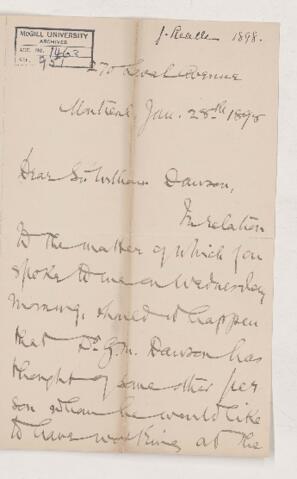 J. Keadle 1898.
McGILL UNIVERSITY
ARCHIVES
ACC. NO. 1463
REF. 951
270 Avenue
Montreal, Jan. 28th 1898
Dear Sir William Dawson,
In relation
to the matter of which you
spoke to me on Wednesday
morning, should it happen
that Dr G. M. Dawson has
thought of some other per
son whom he would like
to have working at the